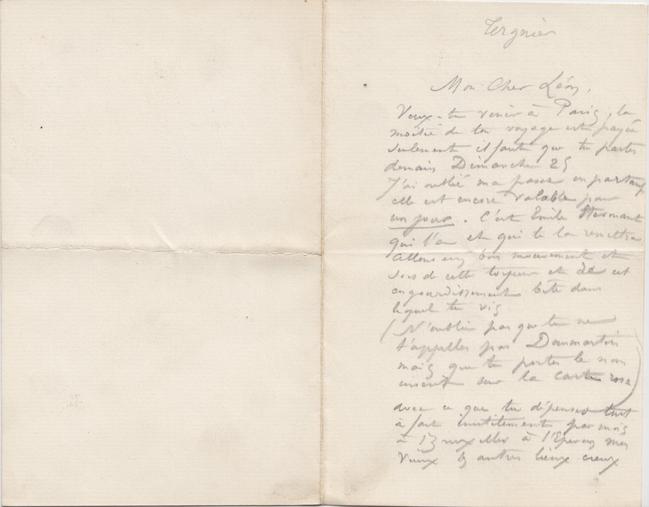 Tergnier
Mon Cher Léon,
Veux-tu venir à Paris, la
moitié de ton voyage est payée
seulement il faut que tu partes
demain Dimanche 25
J'ai oublié ma passe en partant
elle est encore valable pour
un jour. C'est Emile
qui l'a et qui te la remettra
Allons un bon mouvement et
sors de cette torpeur et de cet
engourdissement bête dans
lequel tu vis
(N'oublie pas que tu ne
t'appelles pas Dommartin
mais que tu portes le nom
inscrit sur la carte rose)
avec ce que tu dépenses tout
à fait inutilement par mois
à Bruxelles à mon
vieux & autres lieux creux